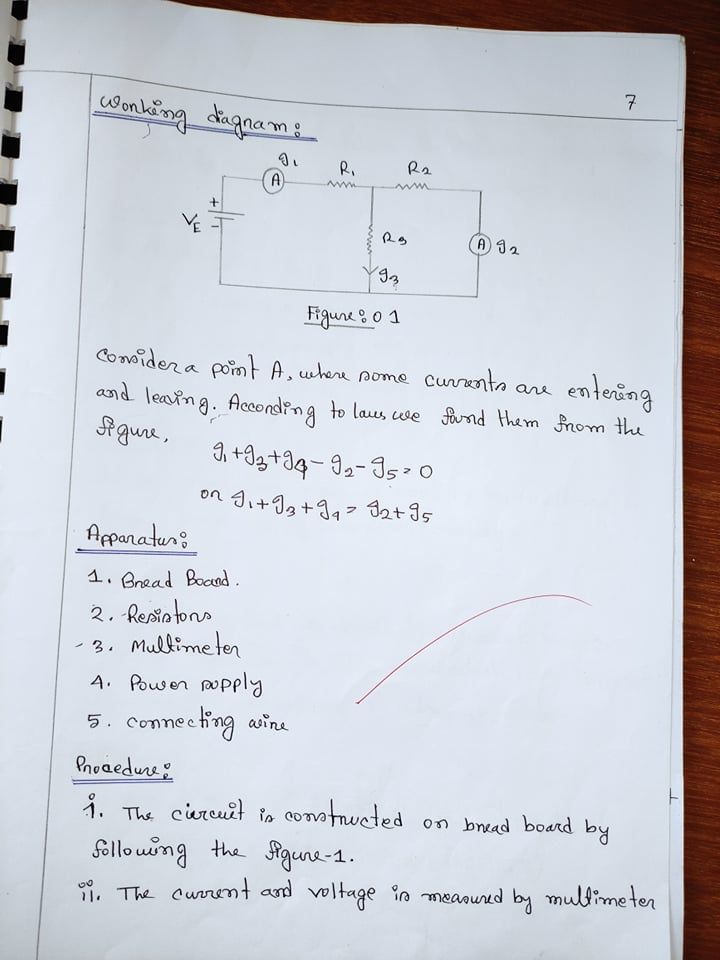 7
Working diagram:
I₁
R₁
R₂
A
+
V_E
-
R₃
A I₂
I₃
Figure: 01
Consider a point A, where some currents are entering
and leaving. According to laws we found them from the
figure,
I₁+I₃+I₄-I₂-I₅=0
or I₁+I₃+I₄= I₂+I₅
Apparatus:
1. Bread Board.
2. Resistors
3. Multimeter
4. Power supply
5. connecting wire
Procedure:
i. The circuit is constructed on bread board by
following the figure-1.
ii. The current and voltage is measured by multimeter